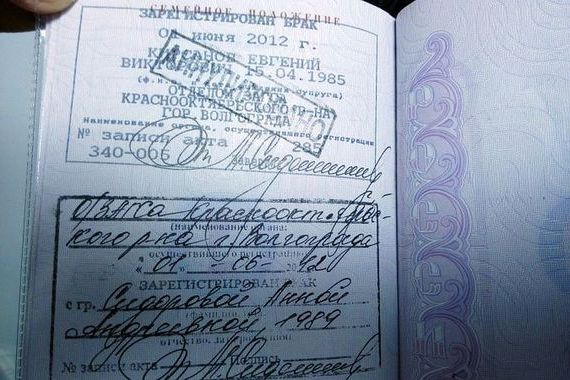 СЕМЕЙНОЕ ПОЛОЖЕНИЕ
ЗАРЕГИСТРИРОВАН БРАК
июня 2012 г.
ЕВГЕНИЙ
15.04.1985
супруга)
КРАСНООКТЯБРЬСКОГО Р-НА
ГОР. ВОЛГОГРАДА
Наименование органа, осуществившего регистрацию
№ записи акта 285
340-006
ОЗАГСа Краснооктябрьс-
кого р-на г. Волгограда
(наименование органа,
осуществившего регистрацию)
ЗАРЕГИСТРИРОВАН БРАК
с гр. Сидоровой Анной
Андреевной, 1989
отчество, дата рождения)
№ записи акта Подпись